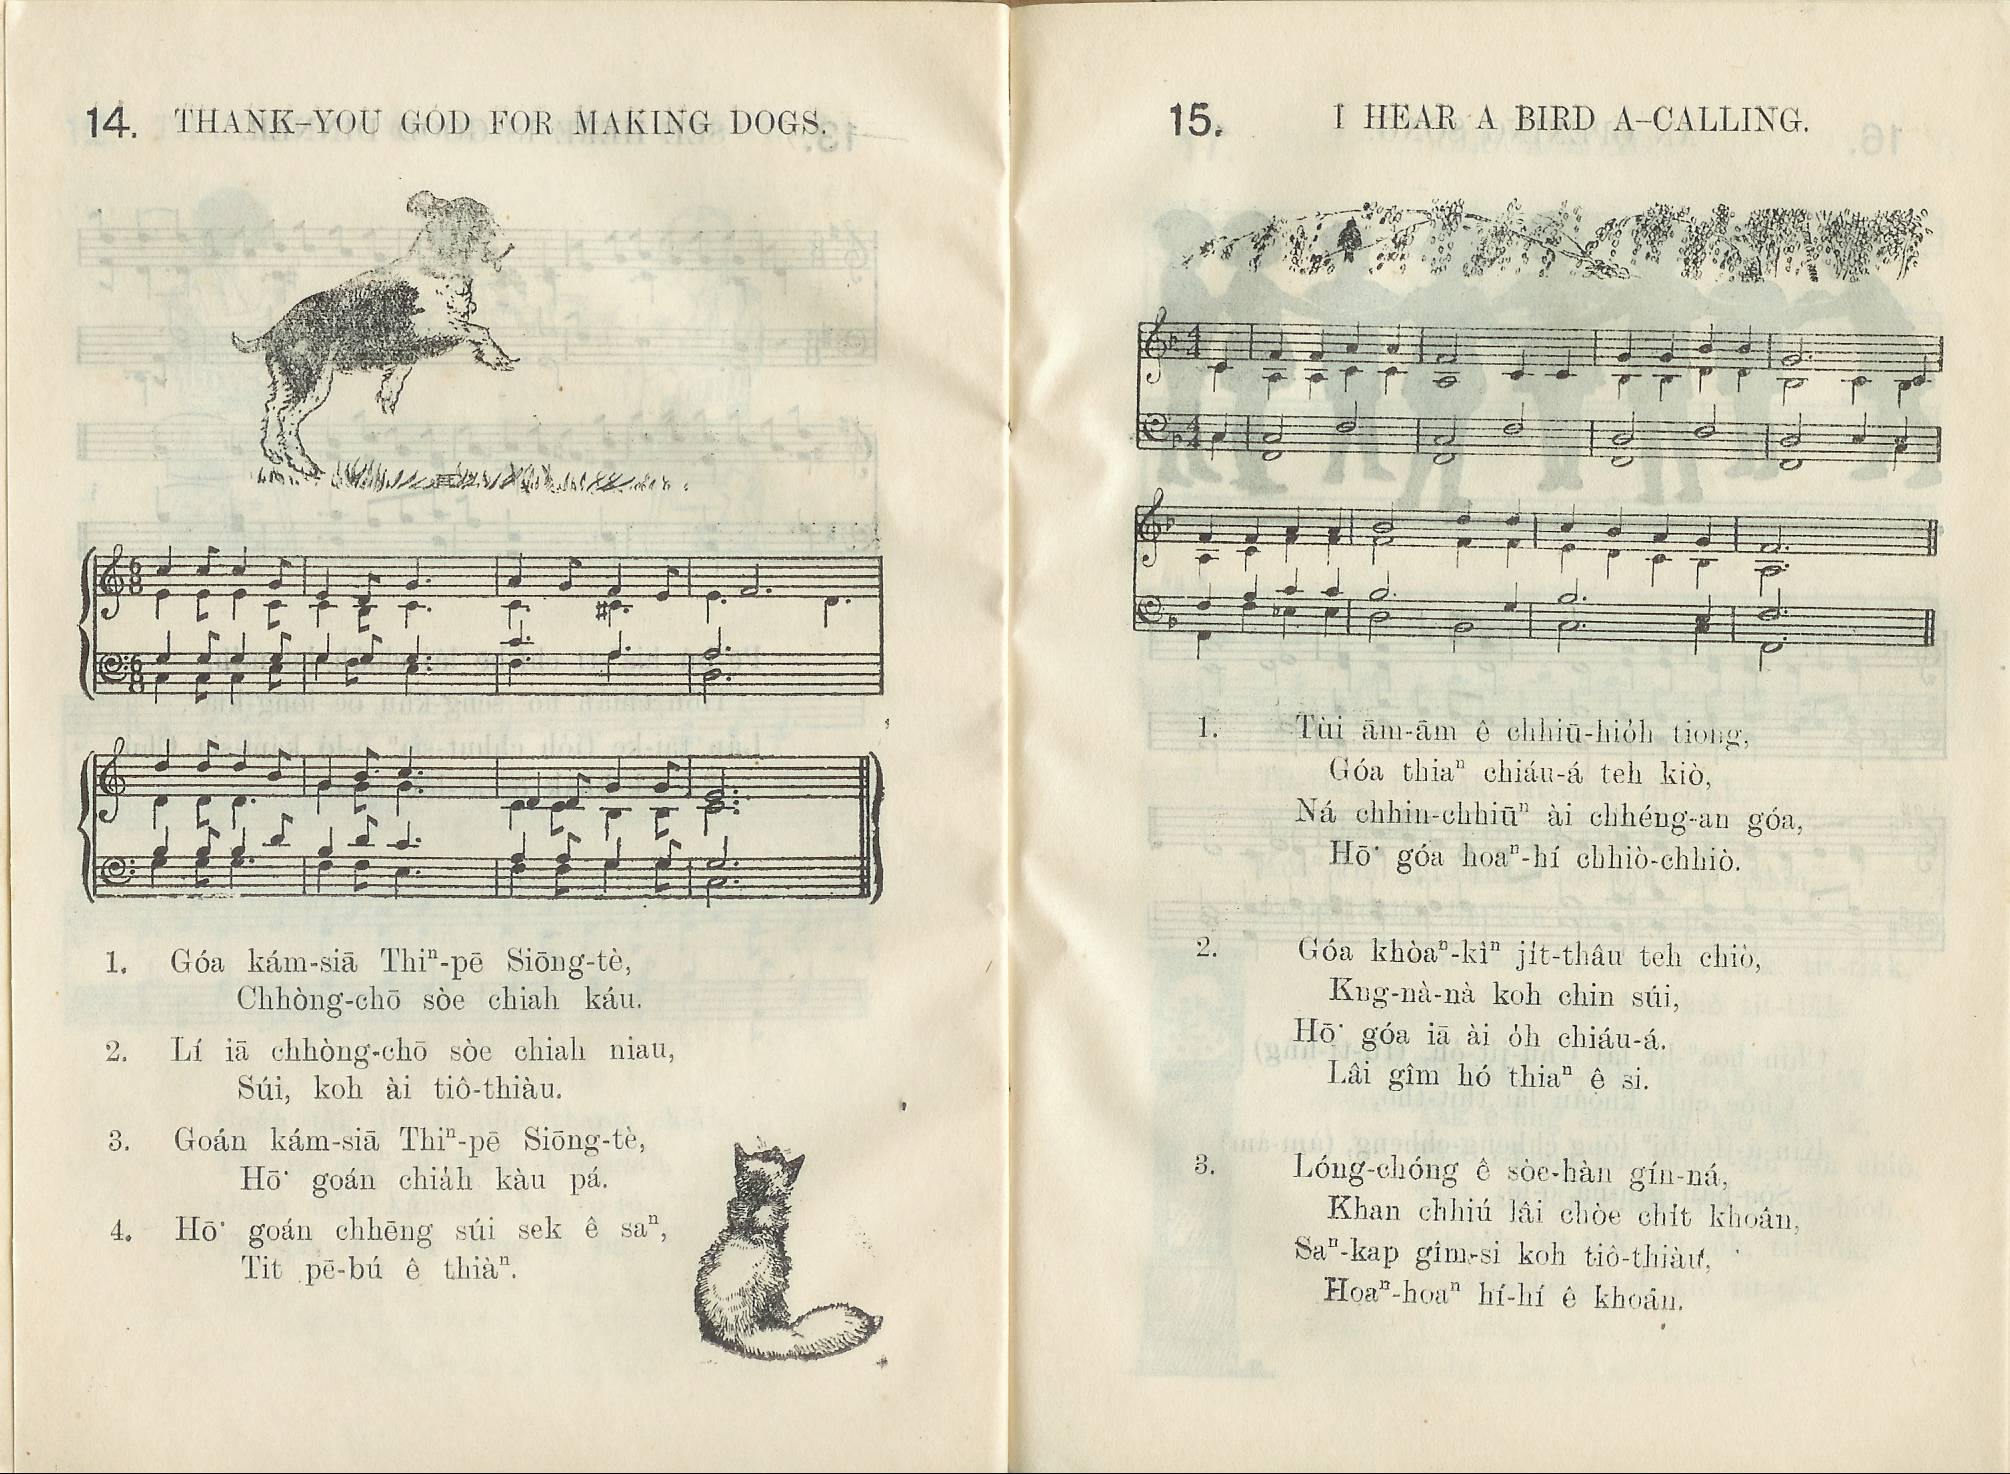 14. THANK-YOU GOD FOR MAKING DOGS.
1. Góa kám-siā Thiⁿ-pē Siōng-tè,
Chhòng-chō sòe chiah káu.
2. Lí iā chhòng-chō sòe chiah niau,
Súi, koh ài tiô-thiàu.
3. Goán kám-siā Thiⁿ-pē Siōng-tè,
Hō͘ goán chia̍h kàu pá.
4. Hō͘ goán chhēng súi sek ê saⁿ,
Tit pē-bú ê thiàⁿ.
15. I HEAR A BIRD A-CALLING.
1. Tùi ām-ām ê chhiū-hio̍h tiong,
Góa thiaⁿ chiáu-á teh kiò,
Ná chhin-chhiūⁿ ài chhéng-an góa,
Hō͘ góa hoaⁿ-hí chhiò-chhiò.
2. Góa khòaⁿ-kìⁿ ji̍t-thâu teh chiò,
Kng-nà-nà koh chin súi,
Hō͘ góa iā ài o̍h chiáu-á.
Lâi gîm hó thiaⁿ ê si.
3. Lóng-chóng ê sòe-hàn gín-ná,
Khan chhiú lâi chòe chi̍t khoân,
Saⁿ-kap gîm-si koh tiô-thiàu,
Hoaⁿ-hoaⁿ hí-hí ê khoán.